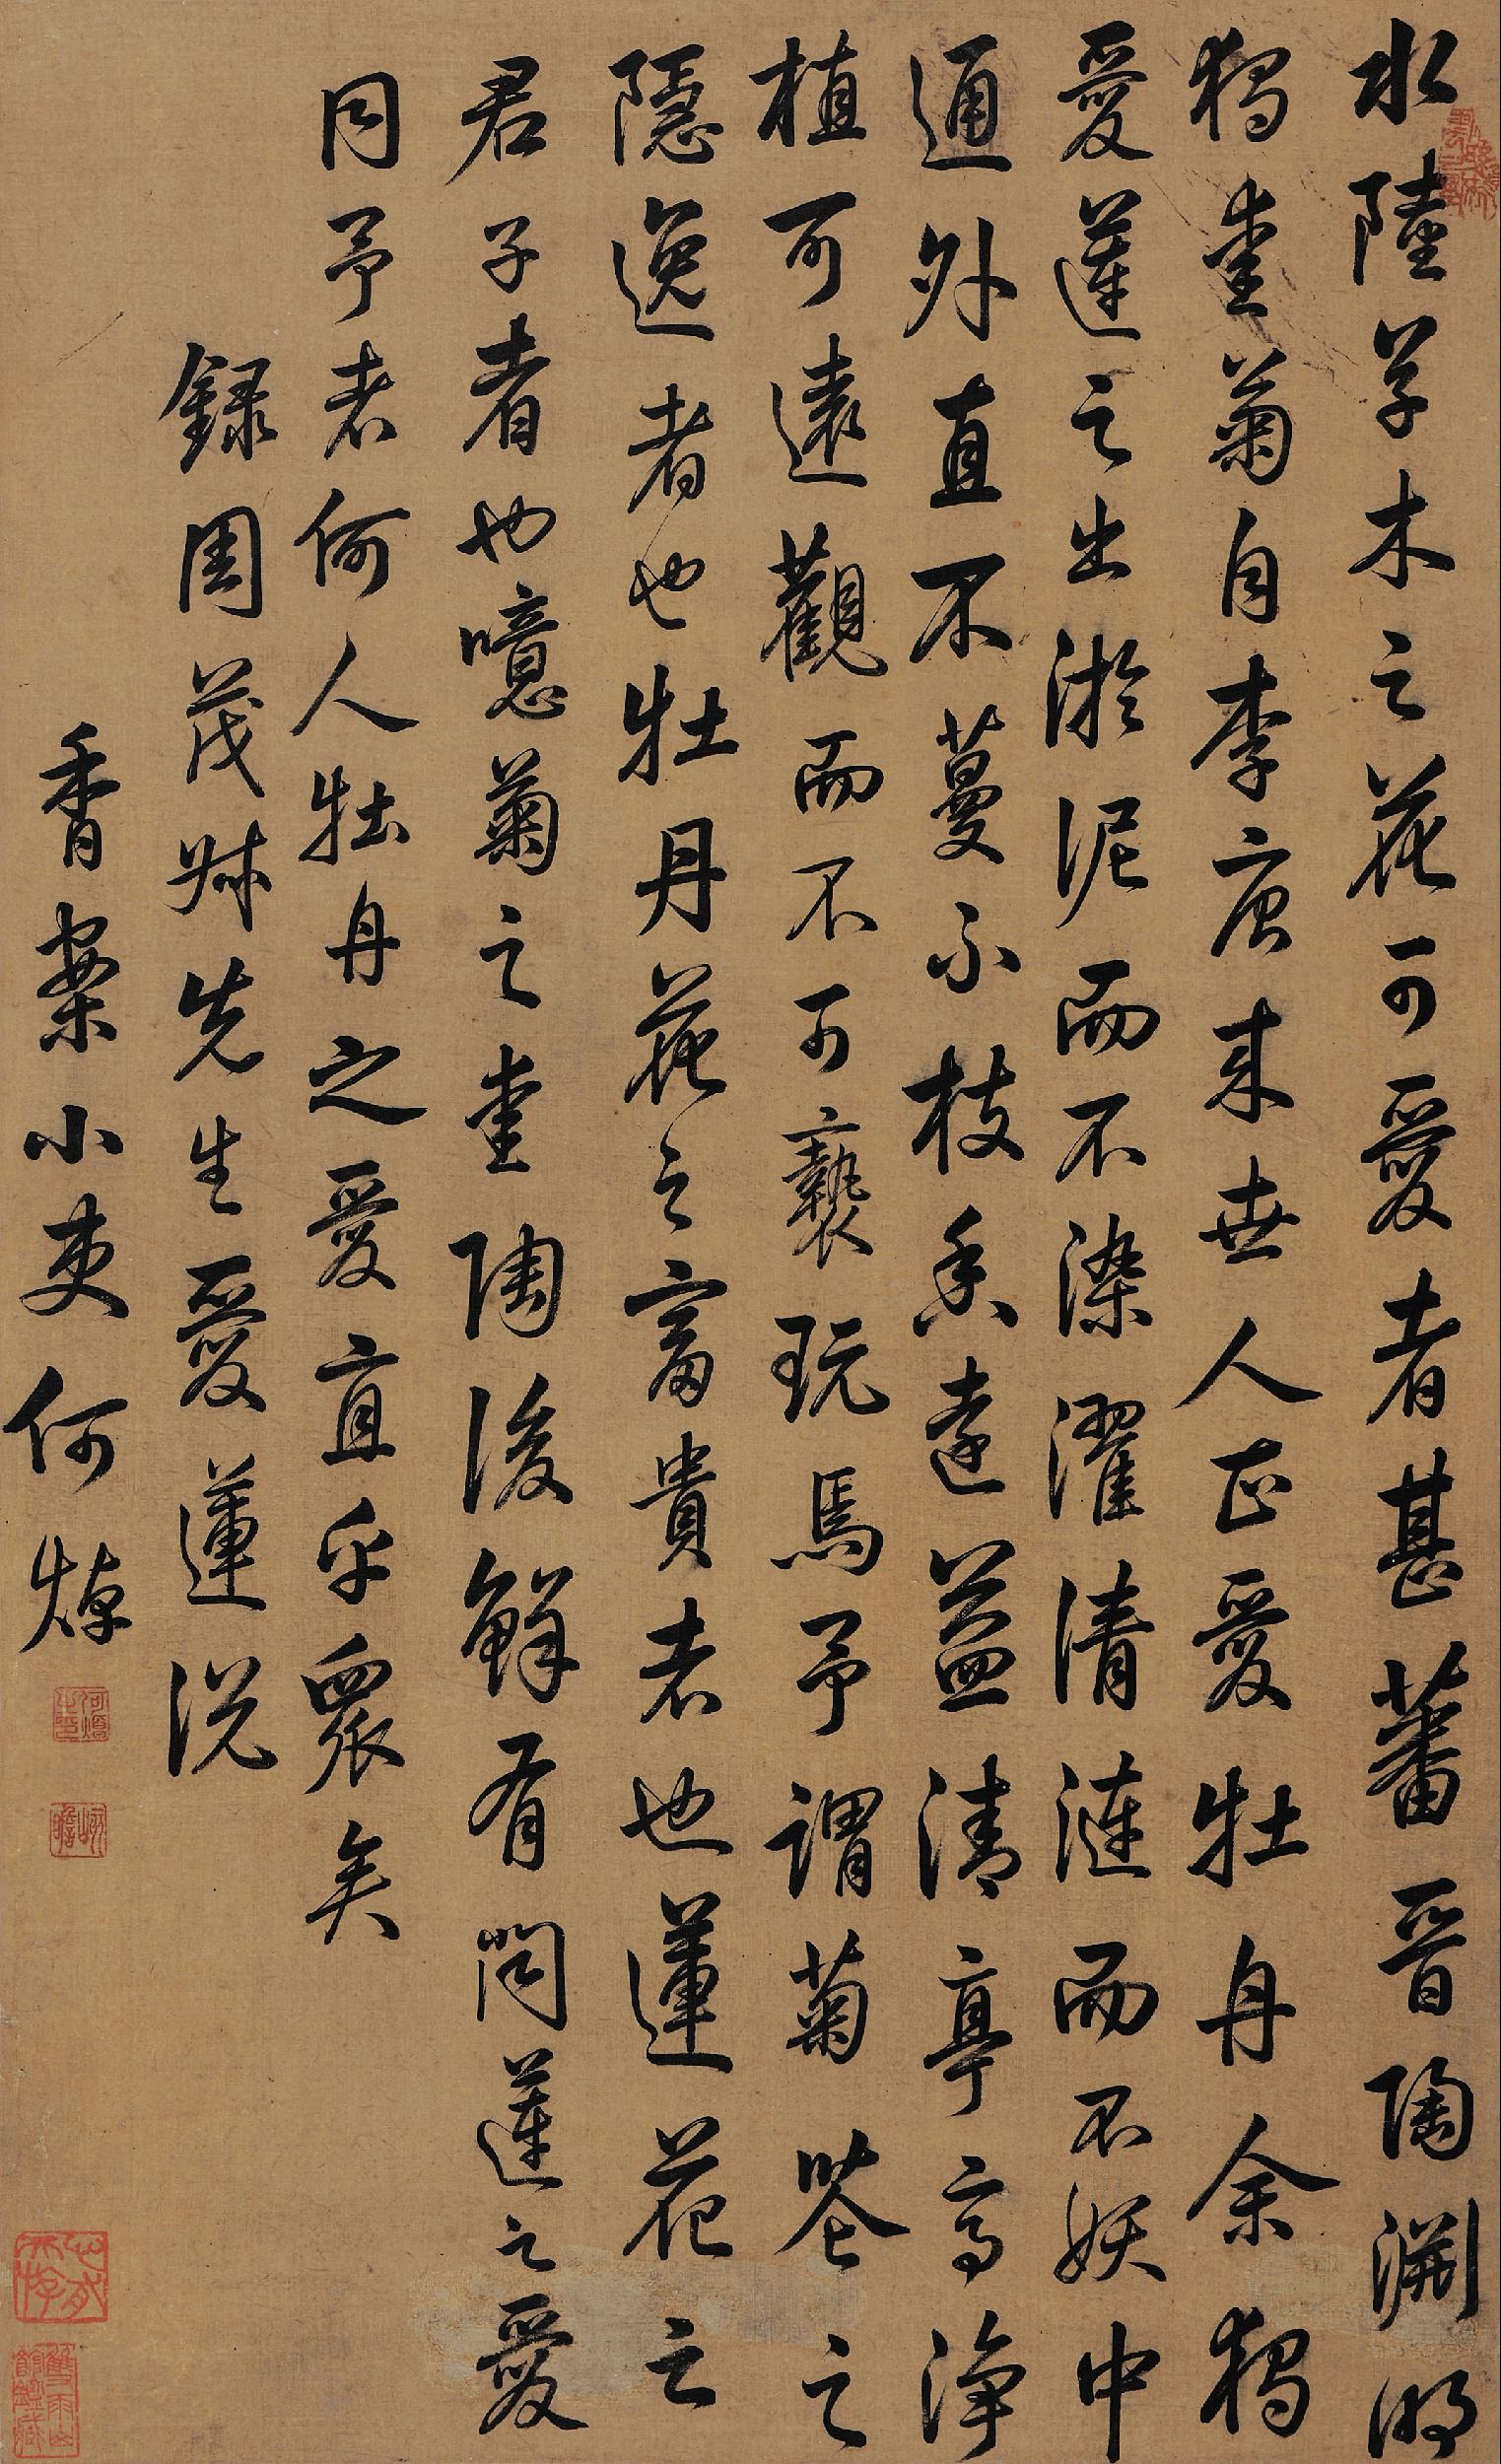 水陸草木之花可愛者甚蕃晉陶淵明
獨愛菊自李唐来世人正愛牡丹余獨
愛蓮之出淤泥而不染濯清漣而不妖中
通外直不蔓不枝香遠益清亭亭淨
植可遠觀而不可褻玩焉予謂菊花之
隱逸者也牡丹花之富貴者也蓮花之
君子者也噫菊之愛陶後鮮有聞蓮之愛
同予者何人牡丹之愛宜乎衆矣
録周茂叔先生愛蓮説
香案小吏何焯
何焯之印
屺瞻